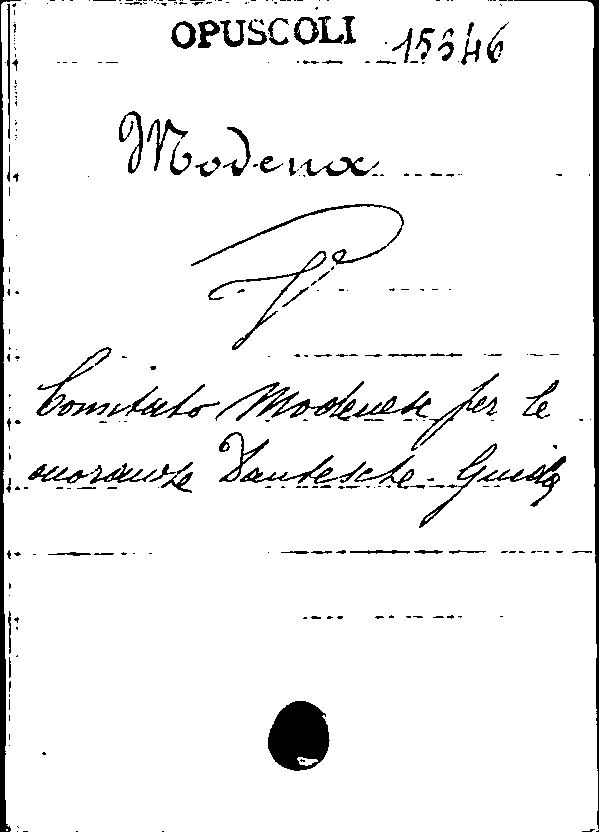 OPUSCOLI 15346
Modena
V
Comitato Modenese per le
onoranze Dantesche - Guida